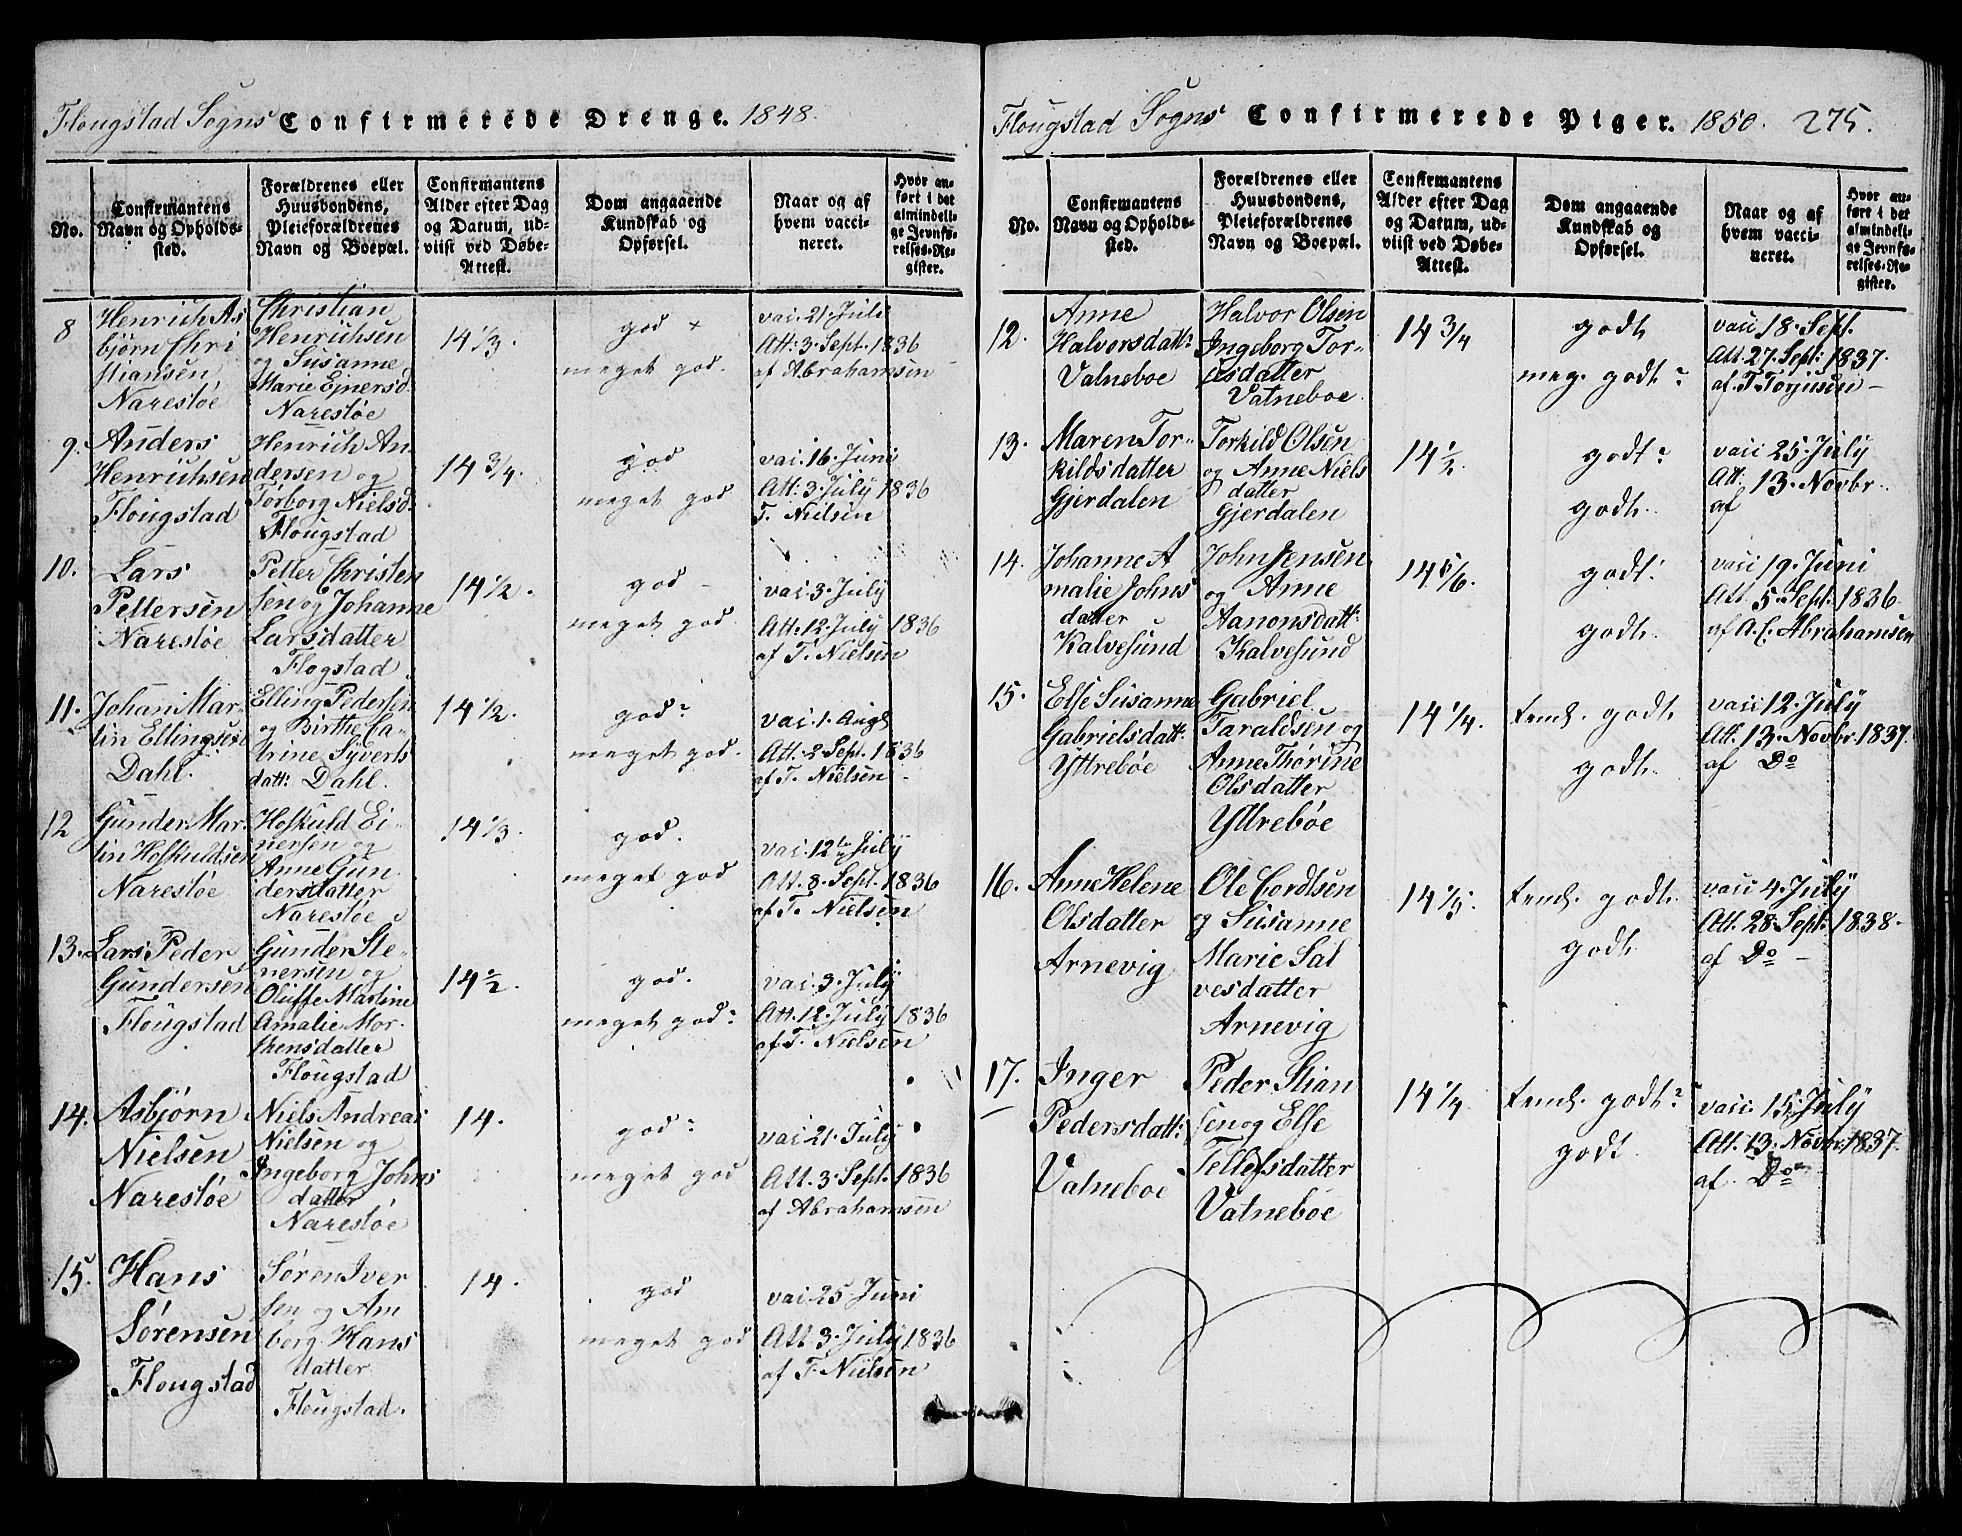 Flougstad Sogns Confirmerede Drenge. 1848.
No.
Confirmantens
Navn og Opholds-
sted.
Forældrenes eller
Huusbondens,
Pleieforældrenes
Navn og Boepæl.
Confirmantens
Alder efter Dag
og Datum, ud-
viist ved Døbe-
Attest.
Dom angaaende
Kundskab og
Opførsel.
Naar og af
hvem vacci-
neret.
Hvor an-
ført i det
almindeli-
ge Jevnfø-
relses-Re-
gister.
8
Henrich As
bjørn Chri
stiansen
Narestøe
Christian
Henrichsen
og Susanne
Marie Ejnersd.
Narestøe
14 1/3.
god +
meget god.
vai. 21. Juli
Att: 3. Sept. 1836
af Abrahamsen
9.
Anders
Henrichsen
Flougstad
Henrich An-
dersen og
Torborg Nielsd:
Flougstad
14 3/4.
god
meget god
vai. 16. Juni
Att: 3. July 1836
T. Nielsen
10.
Lars
Pettersen
Narestøe
Petter Christen
sen og Johanne
Larsdatter
Flogstad
14 1/2.
god -
meget god.
vai. 3. July
Att: 12. July 1836
af T. Nielsen
11.
Johan Mar-
tin Ellingsen
Dahl.
Elling Pedersen
og Birthe Ca-
trine Syverts
datt: Dahl.
14 1/2.
god?
meget god.
vai. 1. Augs
Att. 2. Sept. 1836
af T. Nielsen -
12
Gunder Mar-
tin Hoskuldsen
Narestøe
Hoskuld Ei-
nersen og
Anne Gun
dersdatter
Narestøe
14 1/3.
god.
meget god
vai. 12te July
Att. 8. Sept. 1836
af T. Nielsen
13.
Lars Peder
Gundersen
Flougstad
Gunder Ste-
nersen og
Oluffe Martine
Amalie Mor-
tensdatter
Flougstad
14 1/2.
god.
meget god:
vai. 3. July
Att. 12. July 1836
af T. Nielsen
14.
Asbjørn
Nielsen
Narestøe
Niels Andreas
Nielsen og
Ingeborg Johns
datter
Narestøe
14.
god:
meget god
vai. 21. July
Att. 3. Sept. 1836
af Abrahamsen
15.
Hans
Sørensen
Flougstad
Søren Iver
sen og Am
borg Hans
datter
Flougstad.
14.
god
meget god
vai. 25. Juni
Att. 3. July 1836
af T. Nielsen
Flougstad Sogns Confirmerede Piger. 1850. 275.
No.
Confirmantens
Navn og Opholds-
sted.
Forældrenes eller
Huusbondens,
Pleieforældrenes
Navn og Boepæl.
Confirmantens
Alder efter Dag
og Datum, ud-
viist ved Døbe-
Attest.
Dom angaaende
Kundskab og
Opførsel.
Naar og af
hvem vacci-
neret.
Hvor an-
ført i det
almindeli-
ge Jevnfø-
relses-Re-
gister.
12.
Anne
Halvorsdatt:
Valneboe
Halvor Olsen
Ingeborg Tor-
jesdatter
Valneboe.
14 3/4
godt
meg. godt?
vaci 18. Sept.
Att. 27. Sept: 1837.
af T. Torjusen -
13.
Maren Tor-
kildsdatter
Gjerdalen
Torkild Olsen
og Anne Niels
datter
Gjerdalen
14 1/2.
godt?
godt.
vaci 25. July
Att. 13. Novbr.
af
14.
Johanne A
malie Johns
datter
Kalvesund
John Jensen
og Anne
Aanonsdatt:
Kalvesund
14 1/6.
godt:
godt.
vaci 19. Juni
Att. 5. Sept. 1836.
af A. C. Abrahamsen
15.
Else Susanne
Gabrielsdatt:
Yttrebøe
Gabriel
Taraldsen og
Anne Thorine
Olsdatter
Yttrebøe
14 1/4.
teml. godt
godt.
vaci 12. July
Att. 13. Novbr. 1837.
af Do
16.
Anne Helene
Olsdatter
Arnevig
Ole Cordtsen
og Susanne
Marie Sal
vesdatter
Arnevig
14 1/5.
teml. godt.
godt.
vaci 4. July
Att. 28. Sept: 1838.
af Do -
17.
Inger
Pedersdatt:
Valneboe
Peder Stian
sen og Else
Tellefsdatter
Valnebøe
14 1/4
teml. godt?
godt.
vaci. 15. July
Att. 13. Novbr. 1837.
af. Do